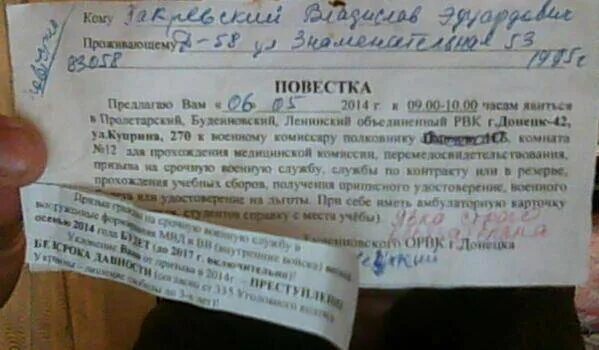 Кому Закревский Владислав Эдуардович
Проживающему Д-58 ул Знаменательная 53
83058 1995г
ПОВЕСТКА
Предлагаю Вам «06 05 2014 г к 09.00-10.00 часам явиться
в Пролетарский, Буденновский, Ленинский объединенный РВК г.Донецк-42,
ул.Куприна, 270 к военному комиссару полковнику комната
№12 для прохождения медицинской комиссии, перемосвидетельствования,
призыва на срочную военную службу, службы по контракту или в резерве,
прохождения учебных сборов, получения приписного удостоверение, военного
или удостоверение на льготы. При себе иметь амбулаторную карточку
студентов справку с места учёбы)
явка строго
обязательна
Буденновского ОРВК г.Донецка
Призыв граждан на срочную военную службу в
вооруженные формирования МВД и ВВ (внутренние войска)
осенью 2014 года БУДЕТ (до 2017 г. включительно)!
Уклонение Вами от призыва в 2014г – ПРЕСТУПЛЕНИЕ
БЕЗСРОКА ДАВНОСТИ (согласно ст 335 Уголовного кодекса
Украины – лишение свободы до 3-х лет)!